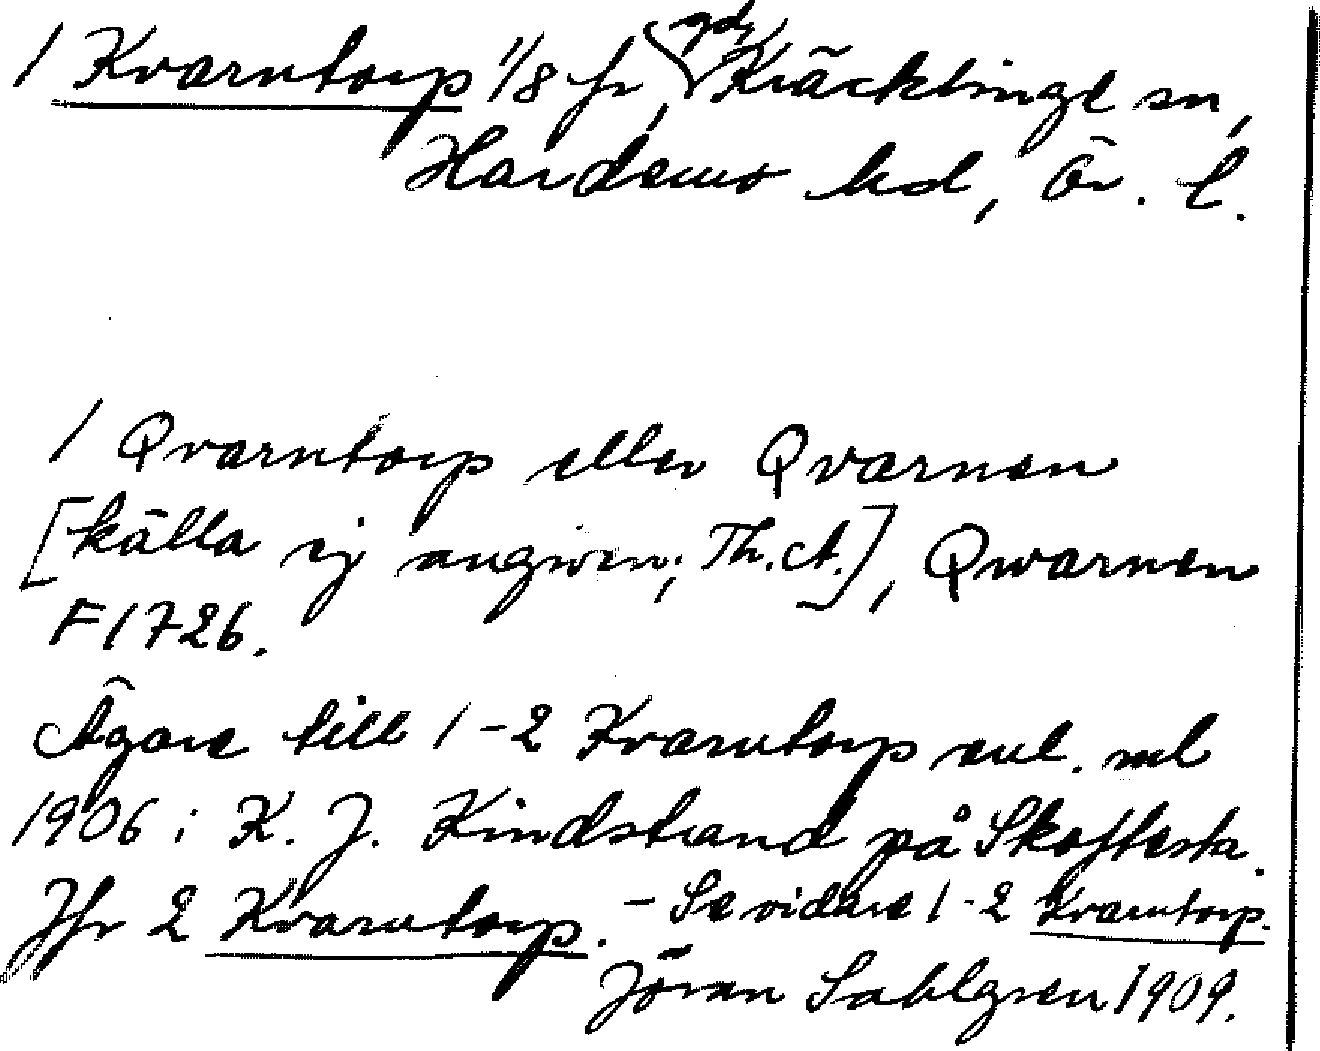 1 Kvarntorp 1/8 fr, gd, Kräcklinge sn,
Hardemo hd, Ör. l.
1 Qvarntorp eller Qvarnen
[källa ej angiven; Th. A.], Qwarnen
F 1726.
Ägare till 1-2 Kvarntorp enl. ml
1906: K. J. Kindstrand på Skoftesta.
Jfr 2 Kvarntorp. - Se vidare 1-2 Kvarntorp.
Jöran Sahlgren 1909.